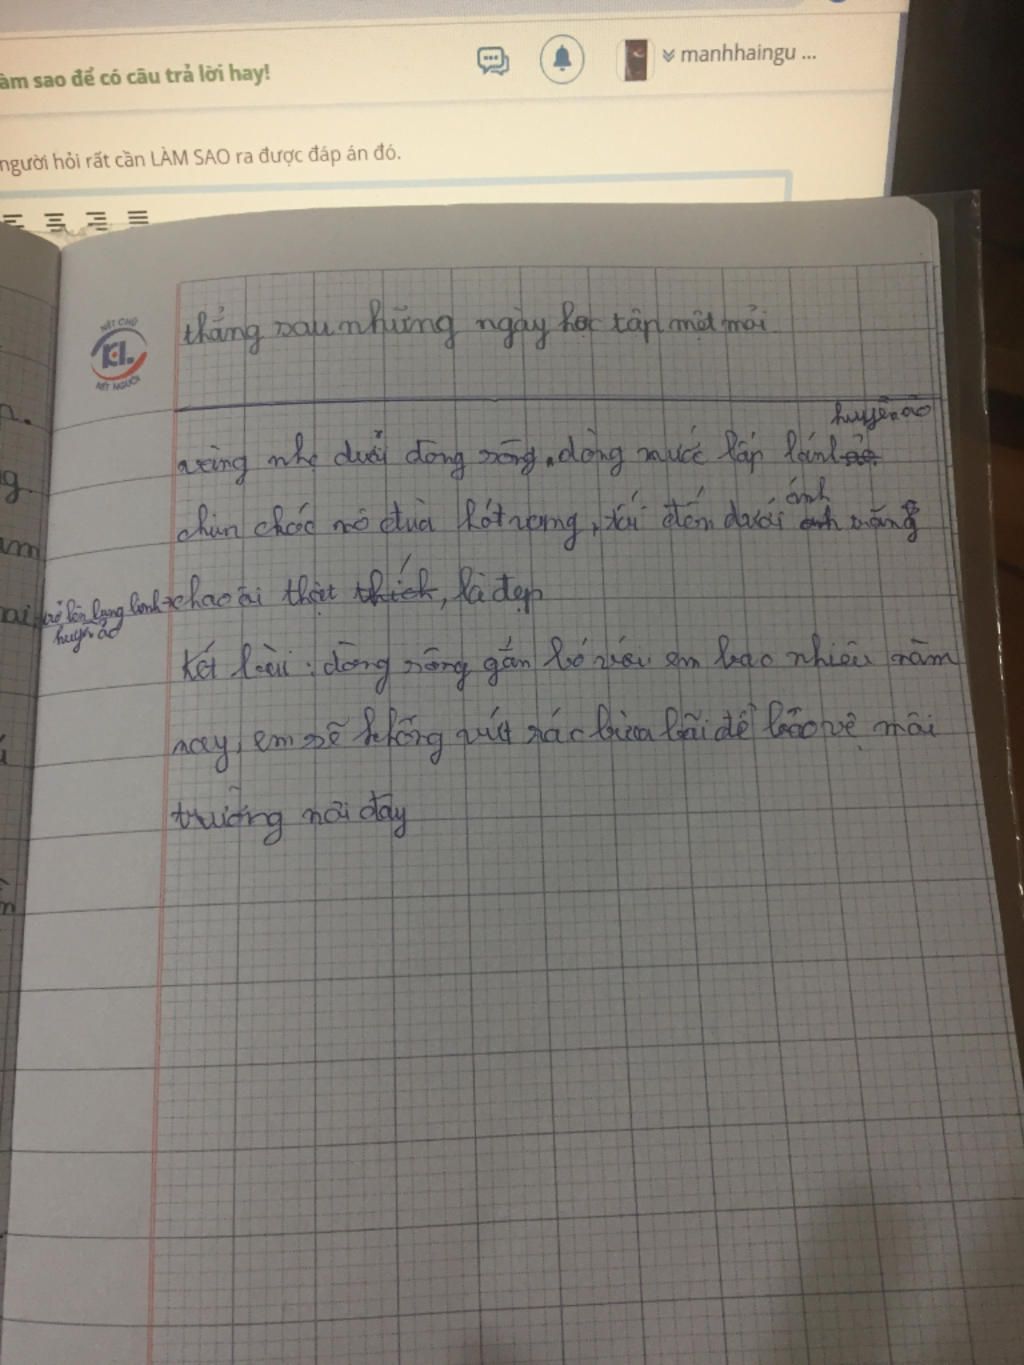 àm sao để có câu trả lời hay!
manhhaingu ...
người hỏi rất cần LÀM SAO ra được đáp án đó.
NÉT CHỮ
KL
NẾT NGƯỜI
thẳng sau những ngày học tập mệt mỏi
huyền ảo
vàng nhẹ dưới dòng sông, dòng nước lấp lánh
chim chóc nô đùa hót vang, tối đến dưới ánh trăng
trở lên lung linh huyền ảo
chao ôi thật thích, là đẹp
Kết bài: dòng sông gắn bó với em bao nhiêu năm
nay, em sẽ không vứt rác bừa bãi để bảo vệ môi
trường nơi đây